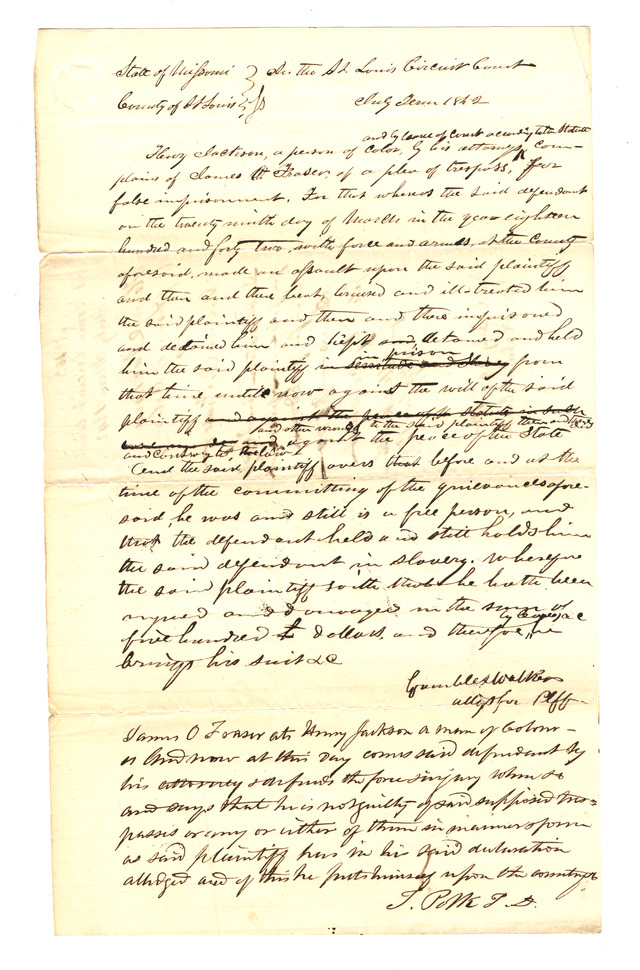 State of Missouri } In the St. Louis Circuit Court
County of St Louis } ss July Term 1842
and by leave of Court according to the Statute
Henry Jackson, a person of color, by his attorneys com-
plains of James O. Fraser, of a plea of trespass, for
false imprisonment. For that whereas the said defendant
on the twenty ninth day of March in the year eighteen
hundred and forty two, with force and arms, at the County
aforesaid, made an assault upon the said plaintiff
and then and there beat, bruised and illtreated him
the said plaintiff and then and there imprisoned
and detained him and kept and detained and held
in prison
him the said plaintiff in servitude and slavery from
that time until now against the will of the said
plaintiff and against the peace of the statute in such
and other wrongs to the said plaintiff then and there did
case made and against the peace of the State
and contrary to the law
And the said plaintiff avers that before and at the
time of the committing of the grievances afore-
said, he was and still is a free person, and
that the defendant held and still holds him
the said defendant in slavery. Wherefore
the said plaintiff saith that he hath been
injured and damaged in the sum of
five hundred dollars, and therefore, he
by leave &c
brings his suit &c
Gamble & Walker
attys for Plff
James O Fraser ats Henry Jackson a man of Colour -
And now at this day comes said defendant by
his attorney & defends the force & injury when &c
and says that he is not guilty of said supposed tres=
passes or any or either of them in manner & form
as said plaintiff has in his said declaration
alledged and of this he puts himself upon the country &c
T. Polk F. D.